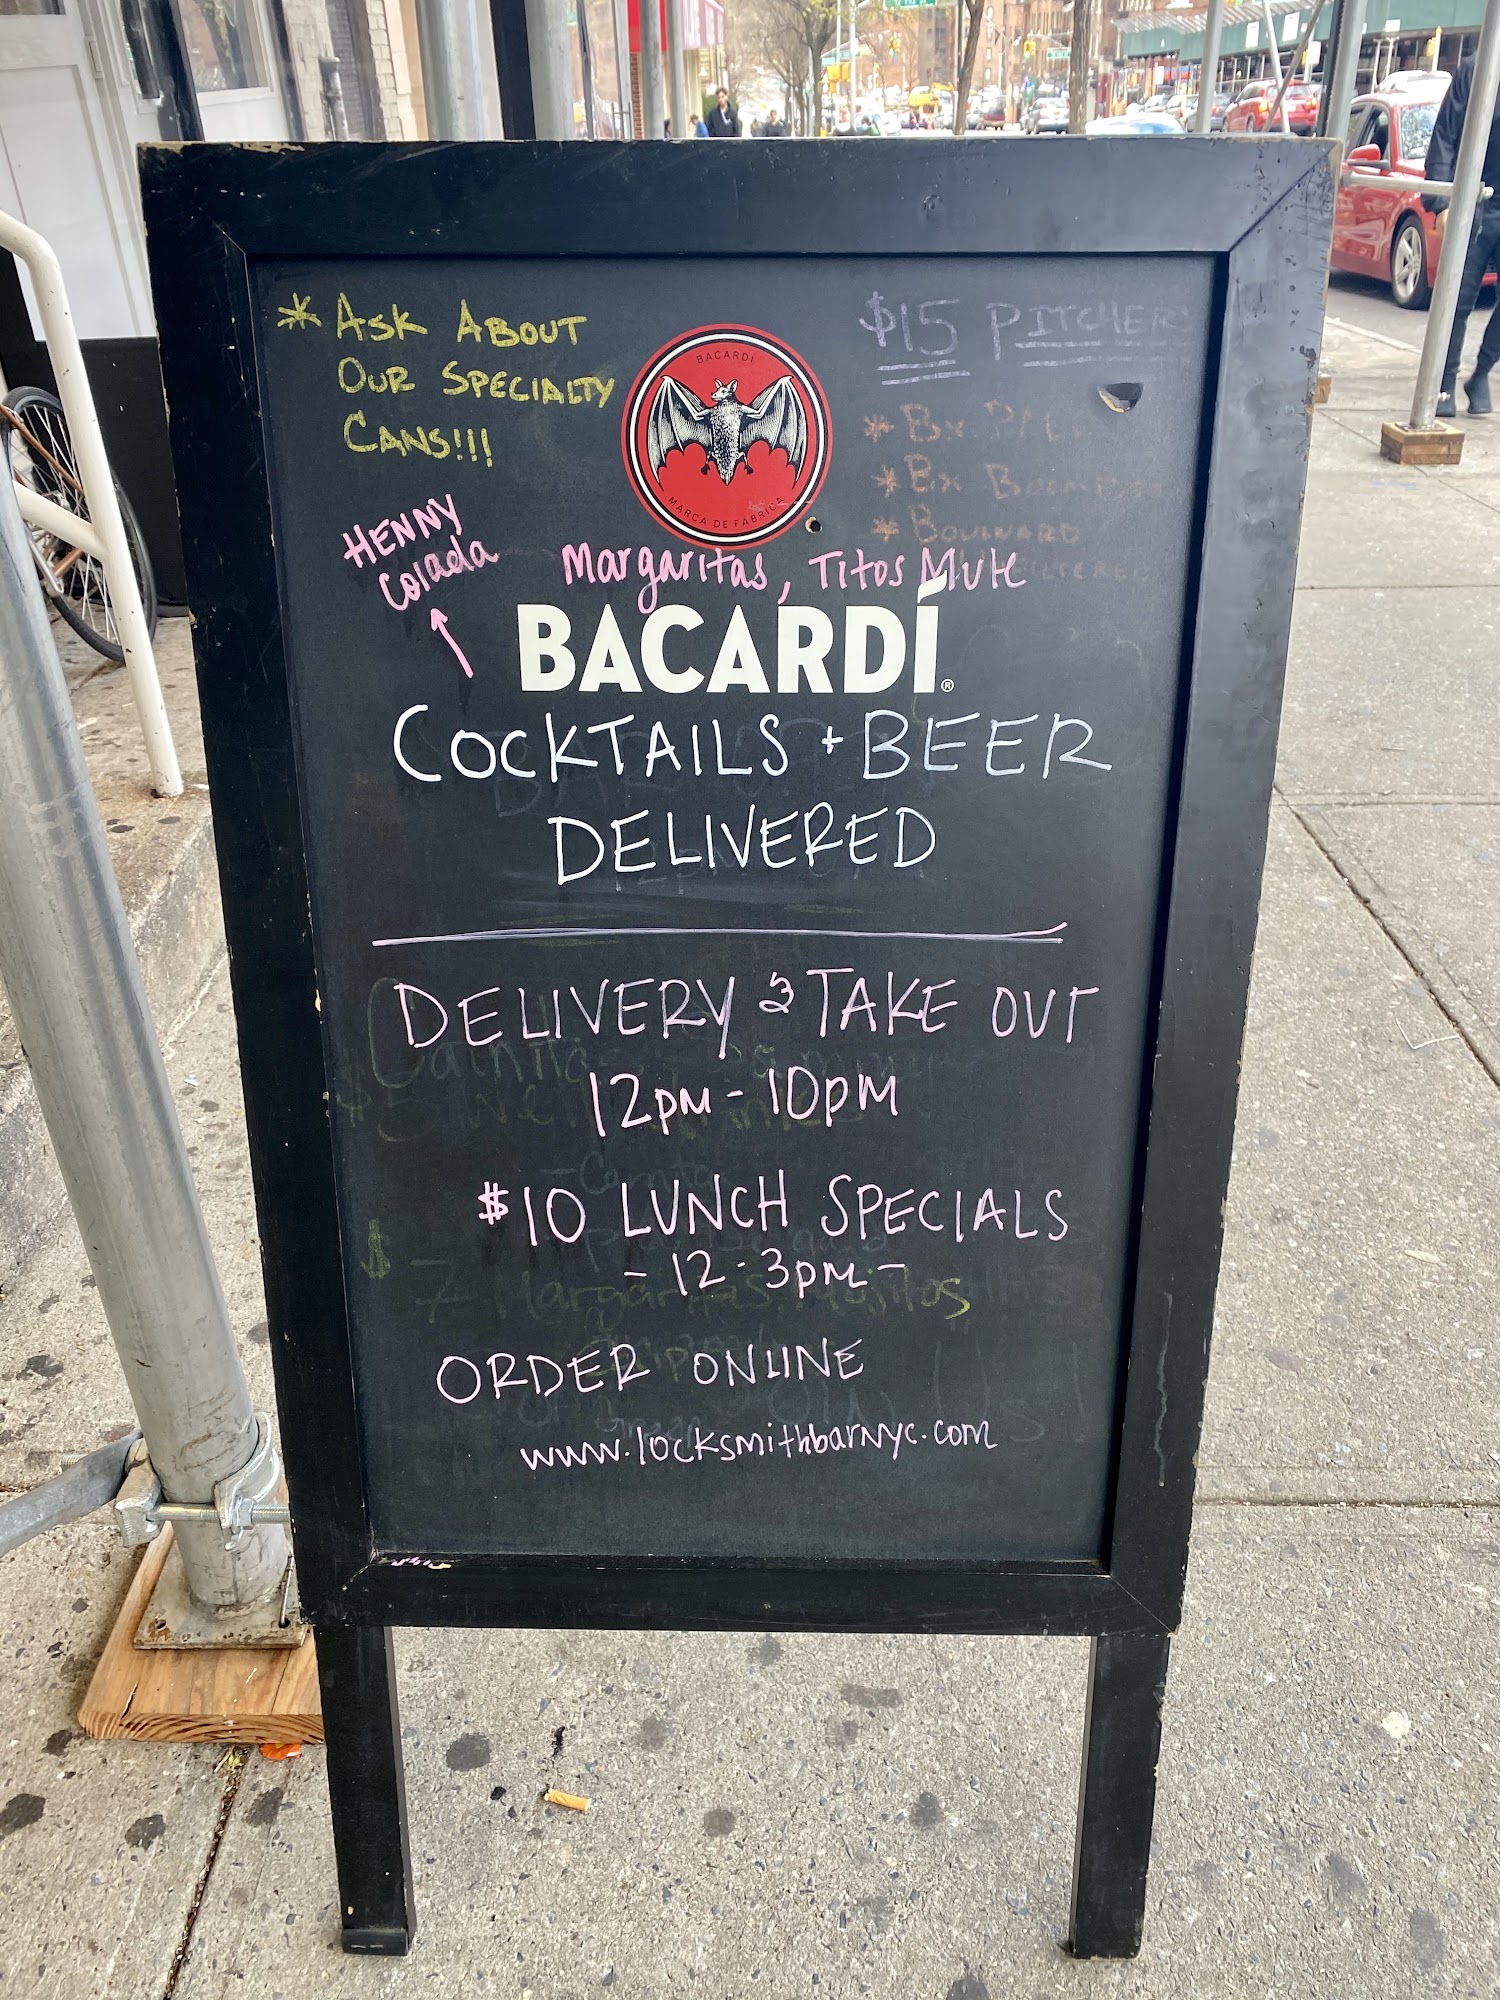 * ASK ABOUT
OUR SPECIALTY
CANS!!!
BACARDÍ
MARCA DE FÁBRICA
$15 PITCHERS
* BX PALE
* BX
* BOULEVARD
HENNY
Colada
Margaritas, TITOS MULE
BACARDÍ®
COCKTAILS + BEER
DELIVERED
DELIVERY & TAKE OUT
12PM - 10PM
$10 LUNCH SPECIALS
- 12 - 3PM -
$
7 Margaritas, Mojitos
ORDER ONLINE
www.locksmithbarnyc.com